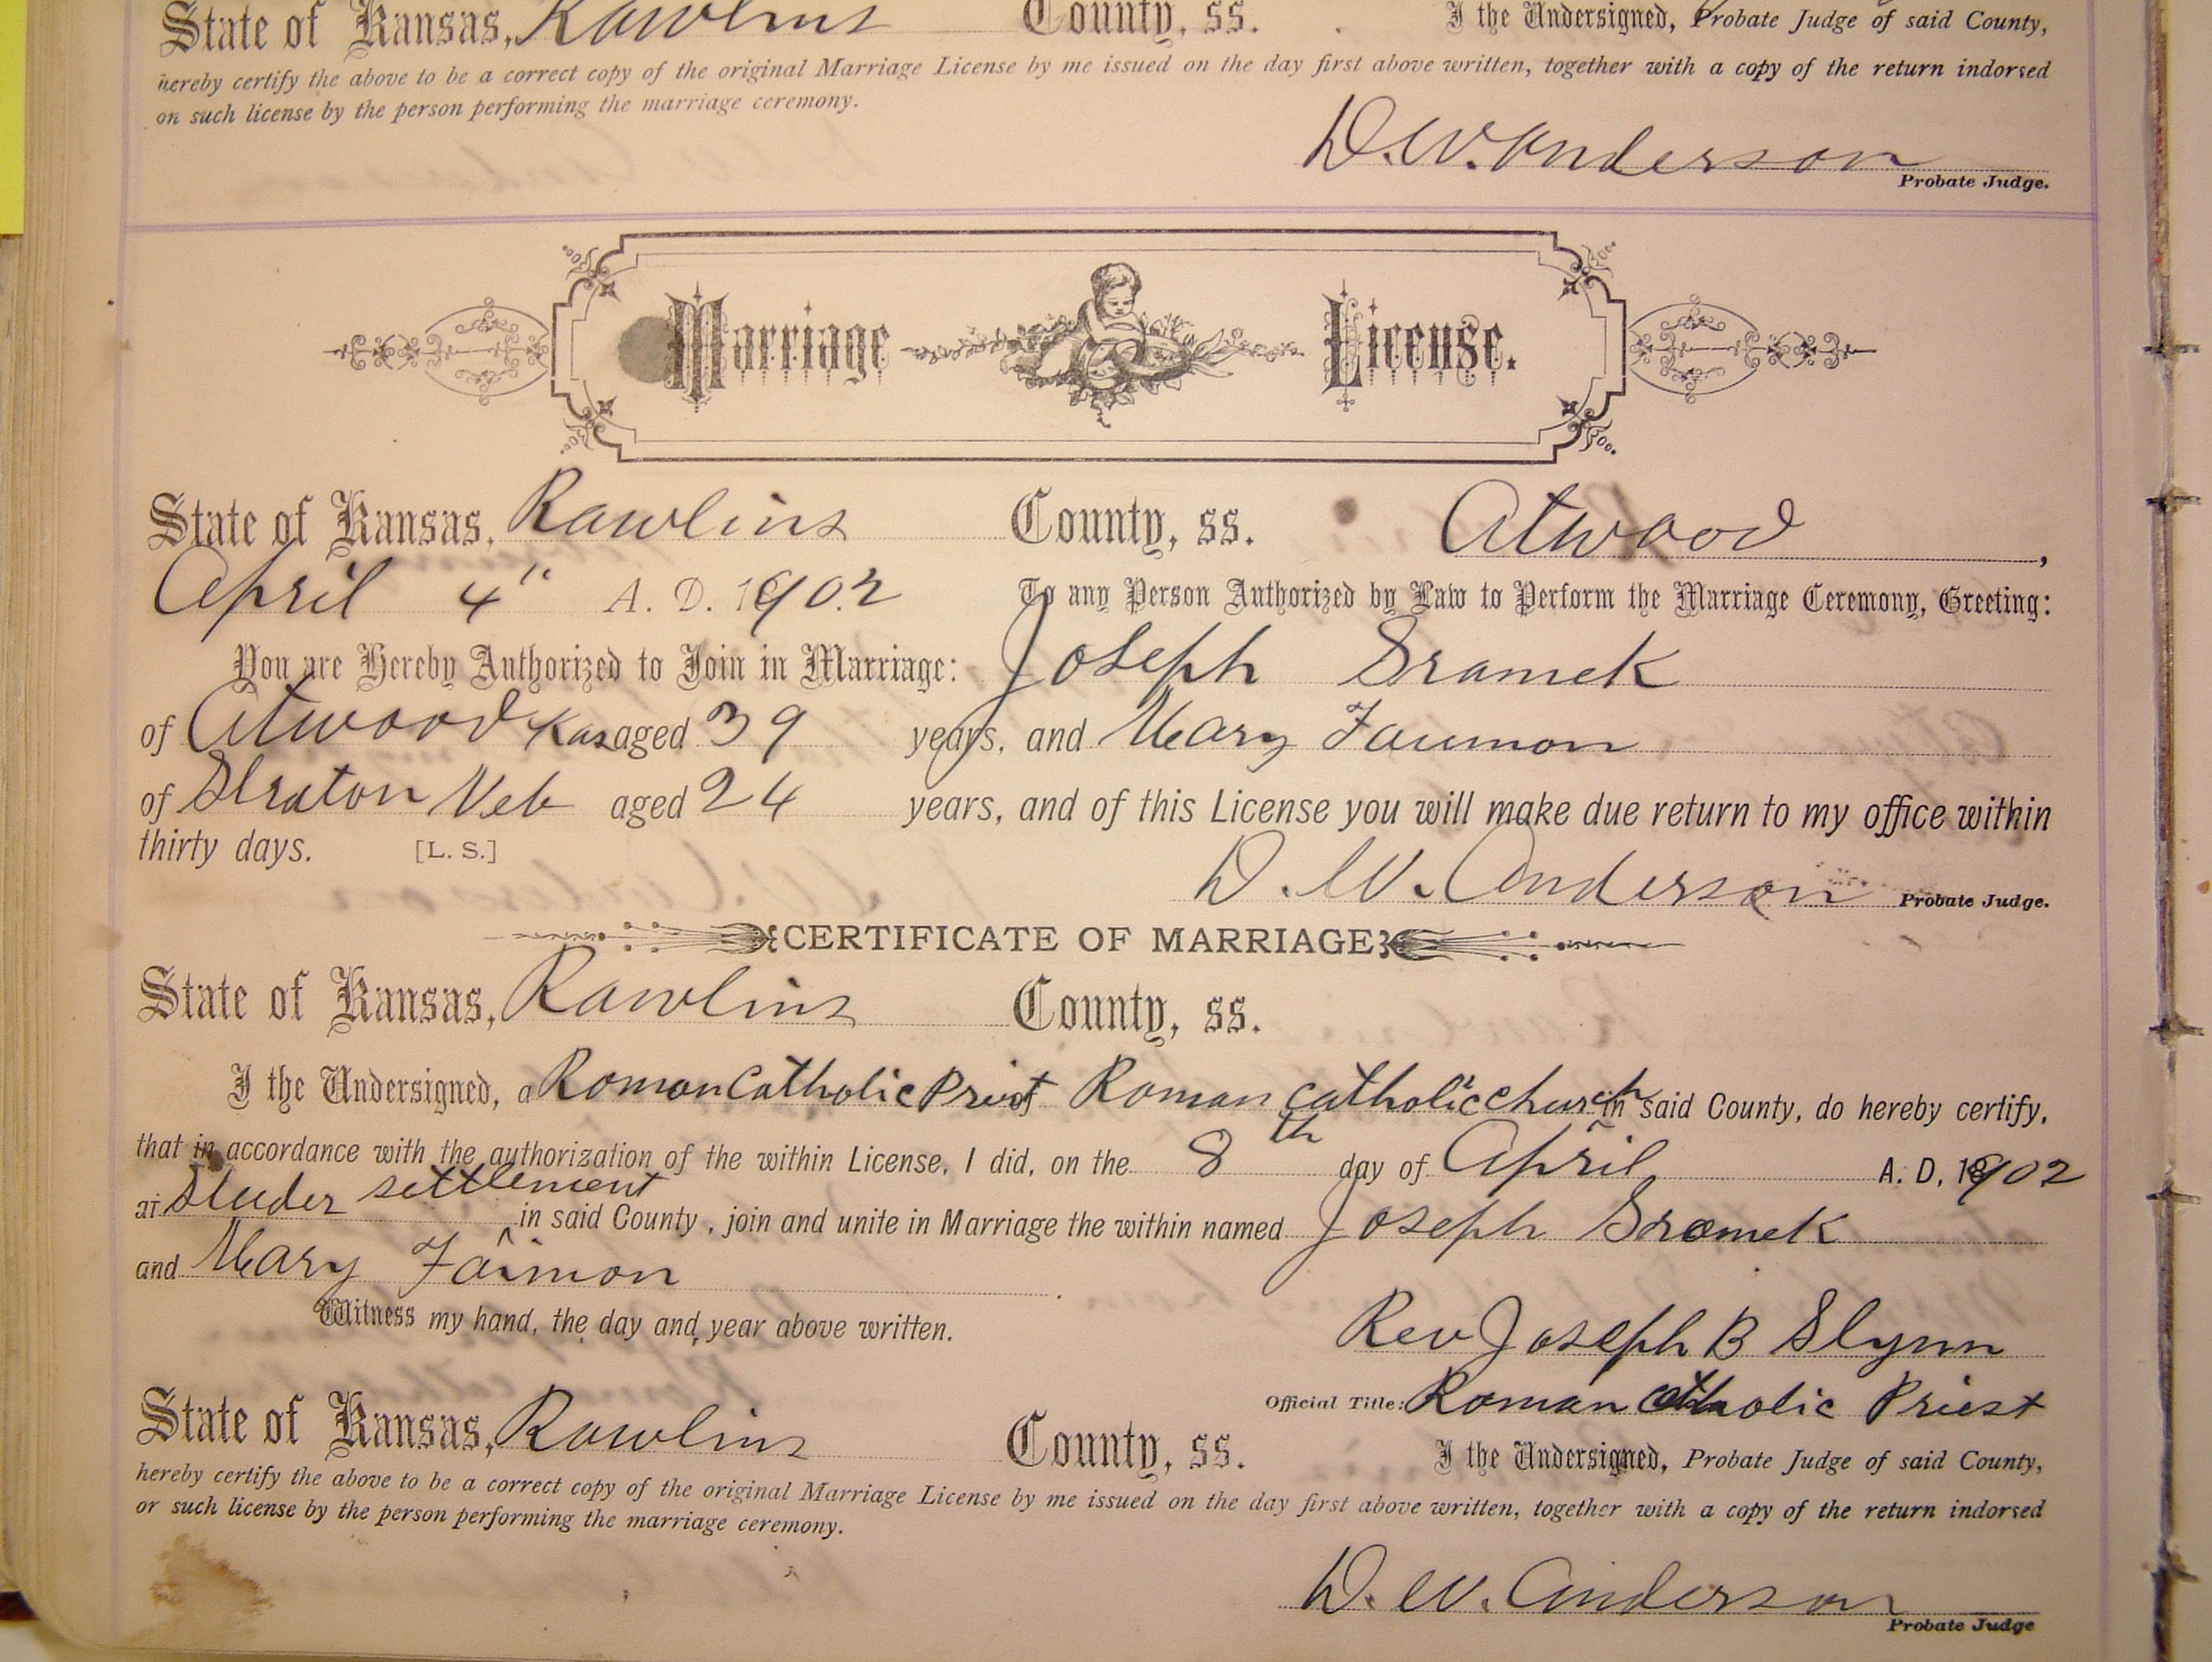 State of Kansas, Rawlins County, ss. I the Undersigned, Probate Judge of said County,
hereby certify the above to be a correct copy of the original Marriage License by me issued on the day first above written, together with a copy of the return indorsed
on such license by the person performing the marriage ceremony.
D. W. Anderson
Probate Judge.
Marriage License.
State of Kansas, Rawlins County, ss. Atwood,
April 4" A. D. 1902 To any Person Authorized by Law to Perform the Marriage Ceremony, Greeting:
You are Hereby Authorized to Join in Marriage: Joseph Sramek
of Atwood Kas aged 39 years, and Mary Faumon
of Straton Neb aged 24 years, and of this License you will make due return to my office within
thirty days. [L. S.]
D. W. Anderson Probate Judge.
CERTIFICATE OF MARRIAGE
State of Kansas, Rawlins County, ss.
I the Undersigned, a Roman Catholic Priest Roman catholic church in said County, do hereby certify,
that in accordance with the authorization of the within License, I did, on the 8th day of April A. D. 1902
at Studer settlement in said County, join and unite in Marriage the within named Joseph Sramek
and Mary Faimon
Witness my hand, the day and year above written.
Rev Joseph B Slynn
Official Title: Roman Catholic Priest
State of Kansas, Rawlins County, ss. I the Undersigned, Probate Judge of said County,
hereby certify the above to be a correct copy of the original Marriage License by me issued on the day first above written, together with a copy of the return indorsed
or such license by the person performing the marriage ceremony.
D. W. Anderson
Probate Judge